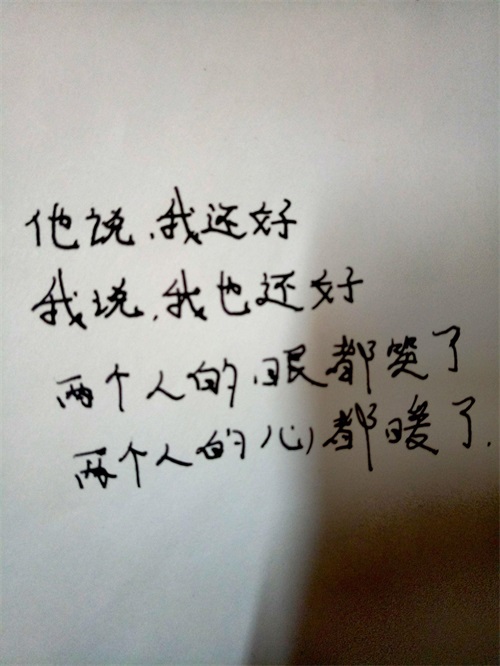 他说,我还好
我说,我也还好
两个人的眼都哭了
两个人的心都暖了.